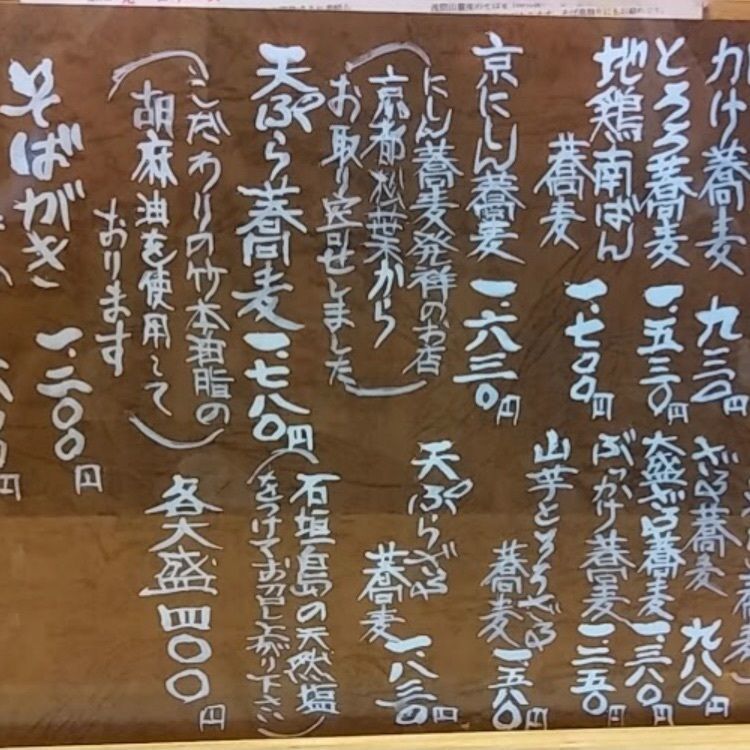 かけ蕎麦 九三〇円
とろろ蕎麦 一.五三〇円
地鶏南ばん
蕎麦 一.七〇〇円
京にしん蕎麦 一.六三〇円
にしん蕎麦発祥のお店
(京都松葉から
お取り寄せしました)
天ぷら蕎麦 一.七八〇円
(こだわりの竹本油脂の
胡麻油を使用して
おります)
そばがき 一.二〇〇円
ざる蕎麦 九八〇円
大盛ざる蕎麦 一.三八〇円
ぶっかけ蕎麦 一.二五〇円
山芋とろろざる
蕎麦 一.五八〇円
天ぷらざる
蕎麦 一.八三〇円
石垣島の天然塩
(をつけてお召し上がり下さい)
各大盛 四〇〇円